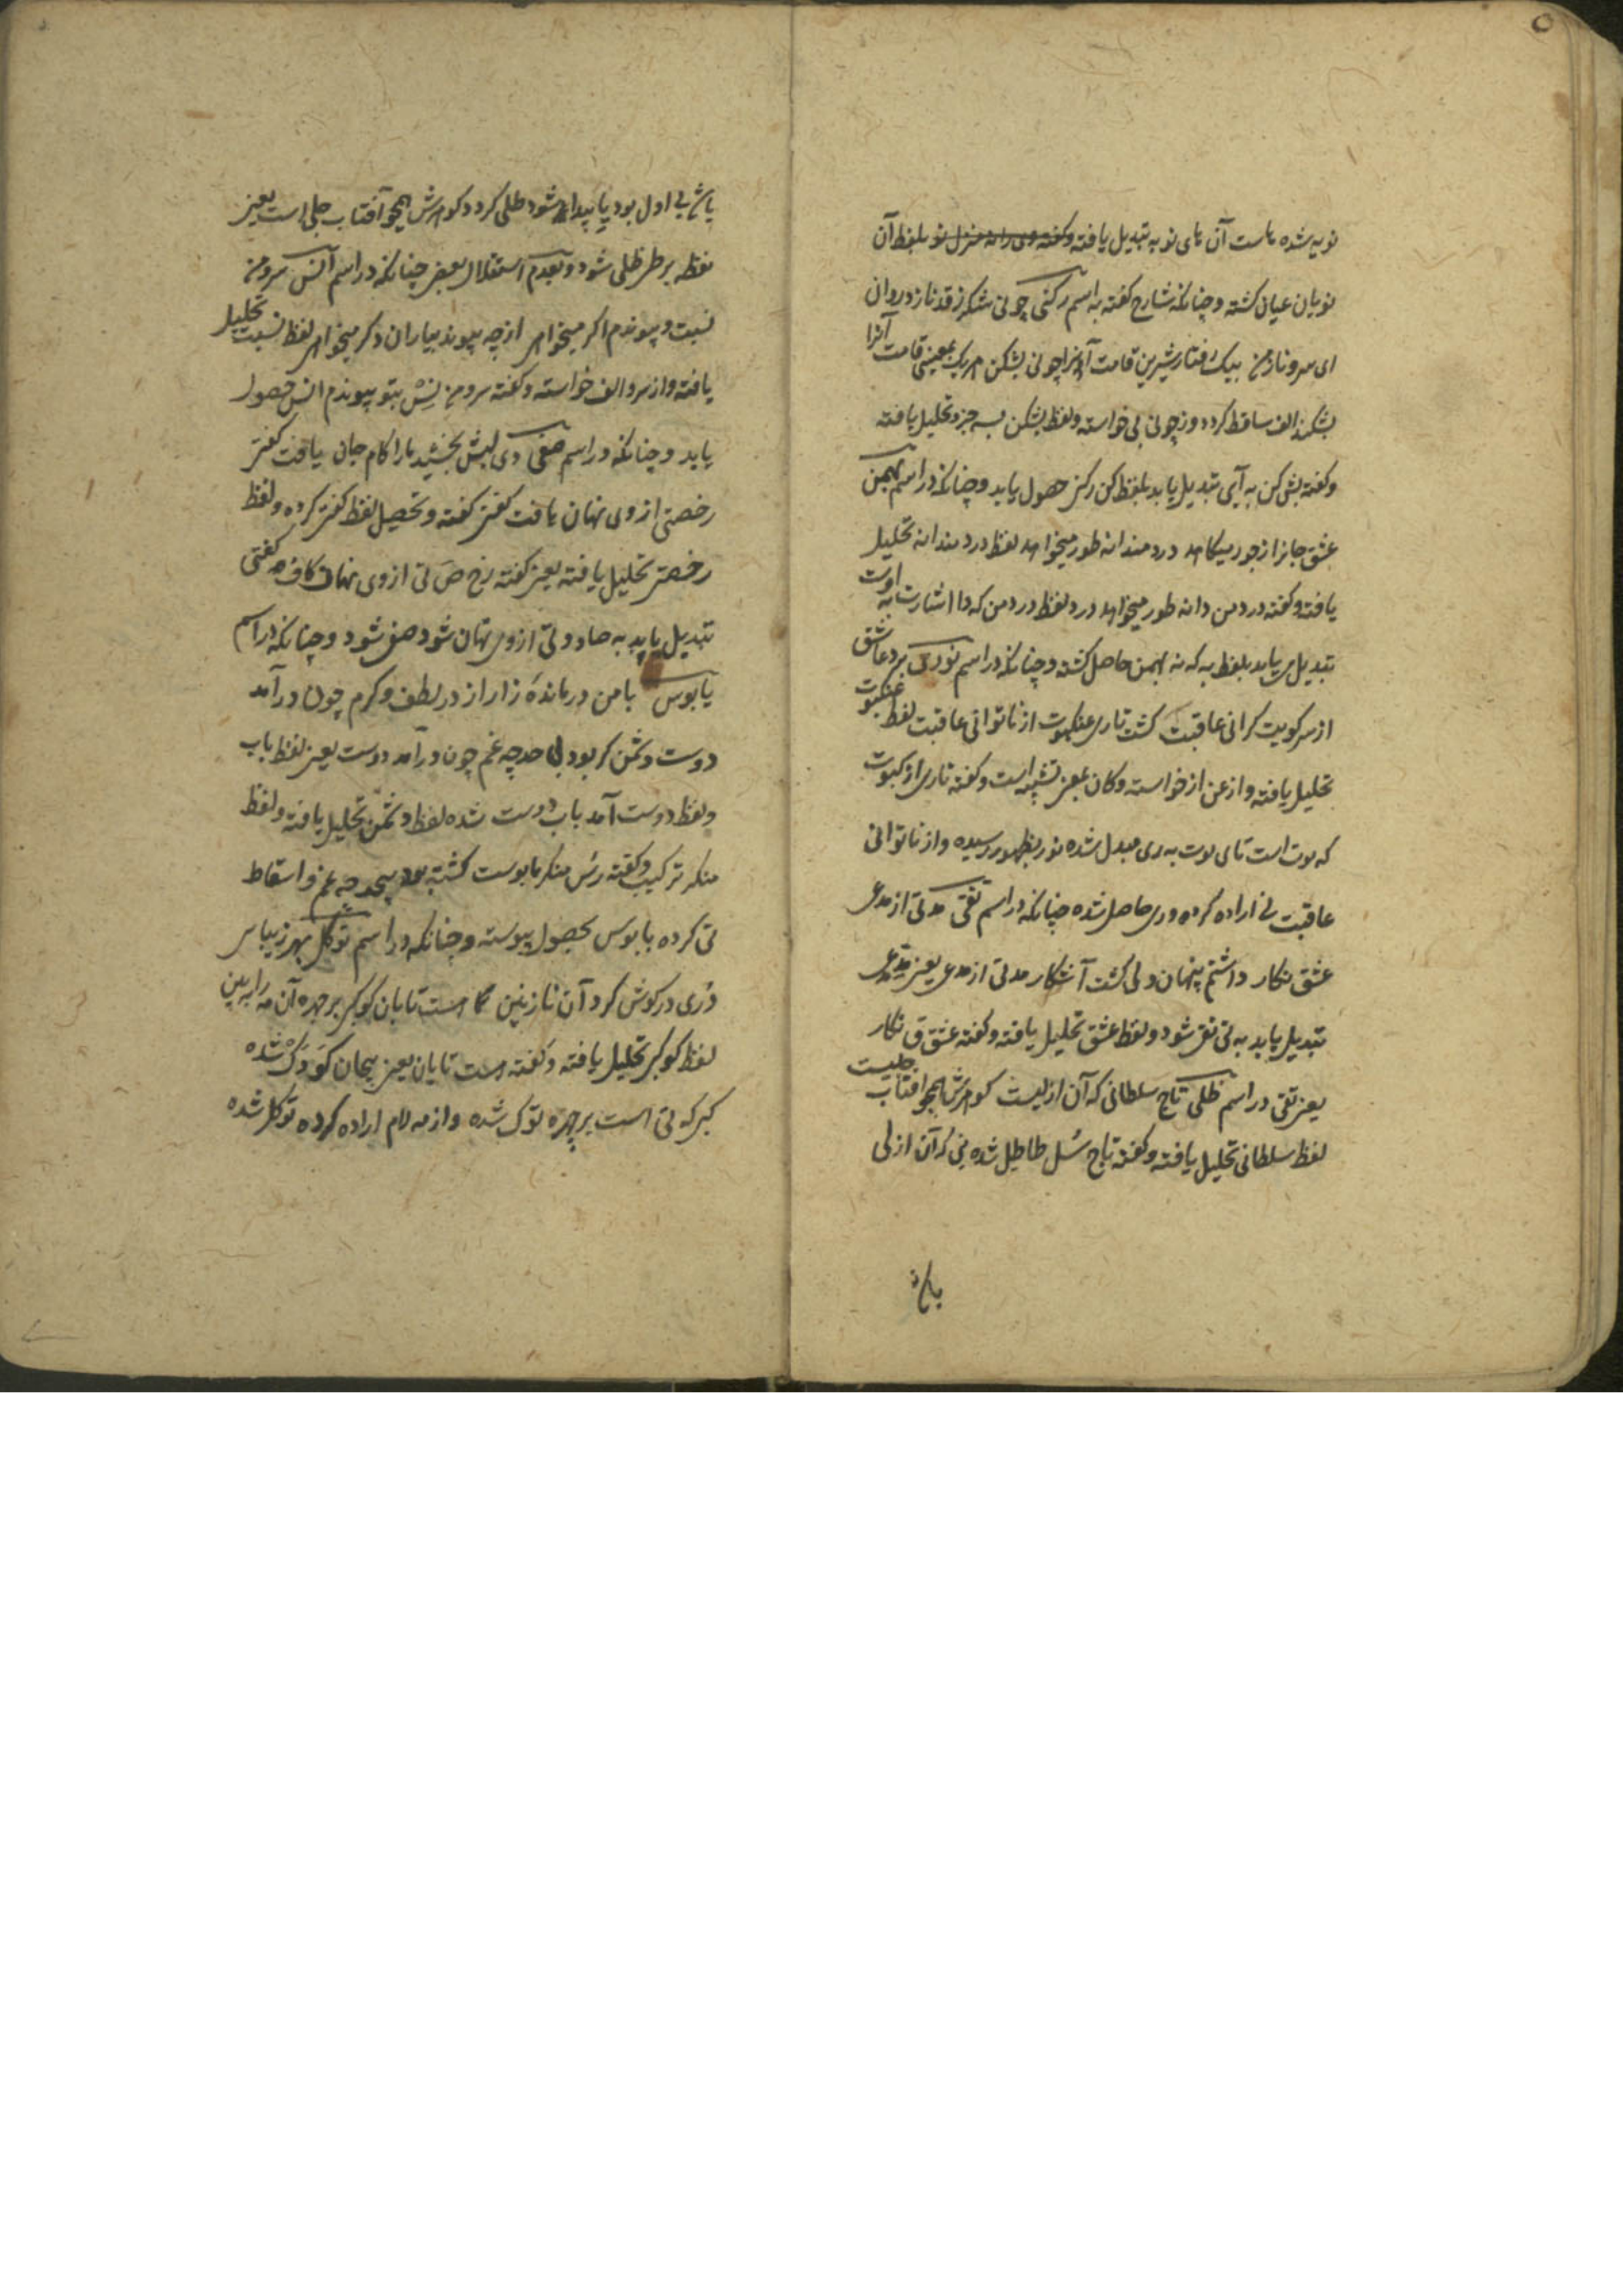 نویه شده ماست آن مای نو به تبدیل یافته بلفظ آن
نویان عیان گشته و چنانکه شارح گفته به اسم رکنی چونی شکرز قد ناز دروان
ای سرو ناز من بیک رفتار شیرین قامت آنرا چونی بشکن بمعنی قامت آنرا
بشکند الف ساقط کرده و زچونی بی خواسته و لفظ بشکن بسه جزو تحلیل یافته
و گفته بش کن به آی تبدیل یابد بلفظ کن رکنی حصول یابد و چنانکه در اسم بهمن
عشق جانرا از جور میکاهد دردمندانه طور میخواهد لفظ دردمندانه تحلیل
یافته و گفته در دمن دانه طور میخواهد درد لفظ در دمن که دا اشارت به اوست
تبدیل می یابد بلفظ به که نه بهمن حاصل گشته و چنانکه در اسم نوری برد عاشق
از سر کویت گرانی عاقبت گشت تاری عنکبوت از ناتوانی عاقبت لفظ عنکبوت
تحلیل یافته و از عن از خواسته و کان بمعنی تشبیه است و گفته تاری از کبوت
که بوت است تای بوت به ری مبدل شده نور بظهور رسیده و از ناتوانی
عاقبت نی اراده کرده و ری حاصل شده چنانکه در اسم تقی مدتی از مدعی
عشق نکار داشتم پنهان ولی گشت آشکار مدتی از مدعی یعنی مدعی
تبدیل یابد به تی تق شود و لفظ عشق تحلیل یافته و گفته عشق ق نکار
یعنی تقی در اسم ظلی تاج سلطانی که آن ازلیست گوهرش همچو آفتاب جلیست
لفظ سلطانی تحلیل یافته و گفته تاج سُل طا طل شده نی که آن از لی
یاش
یاش بی اول بود یا پیدا شود طلی گردد گوهرش همچو آفتاب جلی است یعنی
نقطه بر طر ظلی شود و بعدم استقلال بعض چنانکه در اسم آنس سرو من
نسبت و پیوندم اگر میخواهی از چه پیوند بیاران دگر میخواهی لفظ نسبت تحلیل
یافته و از سرو الف خواسته و گفته سرو من نِش بتو پیوندم انس حصول
یابد و چنانکه در اسم صفی دی لبش بخشید مارا کام جان یافت گفتی
رخصتی از وی نهان یافت گفتی گفته و تحصیل لفظ گفتی کرده و لفظ
رخصتی تحلیل یافته یعنی گفته رخ ص تی از وی نهان کاف گفتی
تبدیل یابد به صاد و تی از وی نهان شود صفی شود و چنانکه در اسم
یابوس با من درمانده زار از در لطف و کرم چون در آمد
دوست دشمن گر بود بی حد چه غم چون در آمد دوست یعنی لفظ باب
و لفظ دوست آمد باب دوست شده لفظ دشمن تحلیل یافته و لفظ
منکر ترکیب و گفته دش منکر بابوست گشته بود بیحد چه غم و اسقاط
تی کرده بابوس بحصول پیوسته و چنانکه در اسم توکل بهر زیبایی
دُری در گوش کرد آن نازنین گه است تابان کوکبی بر چهره آن مه را ببین
لفظ کوکبی تحلیل یافته و گفته است تایان یعنی بیجان کو و ک شده
کبی که تی است بر چهره توک شده و از مه لام اراده کرده توکل شده